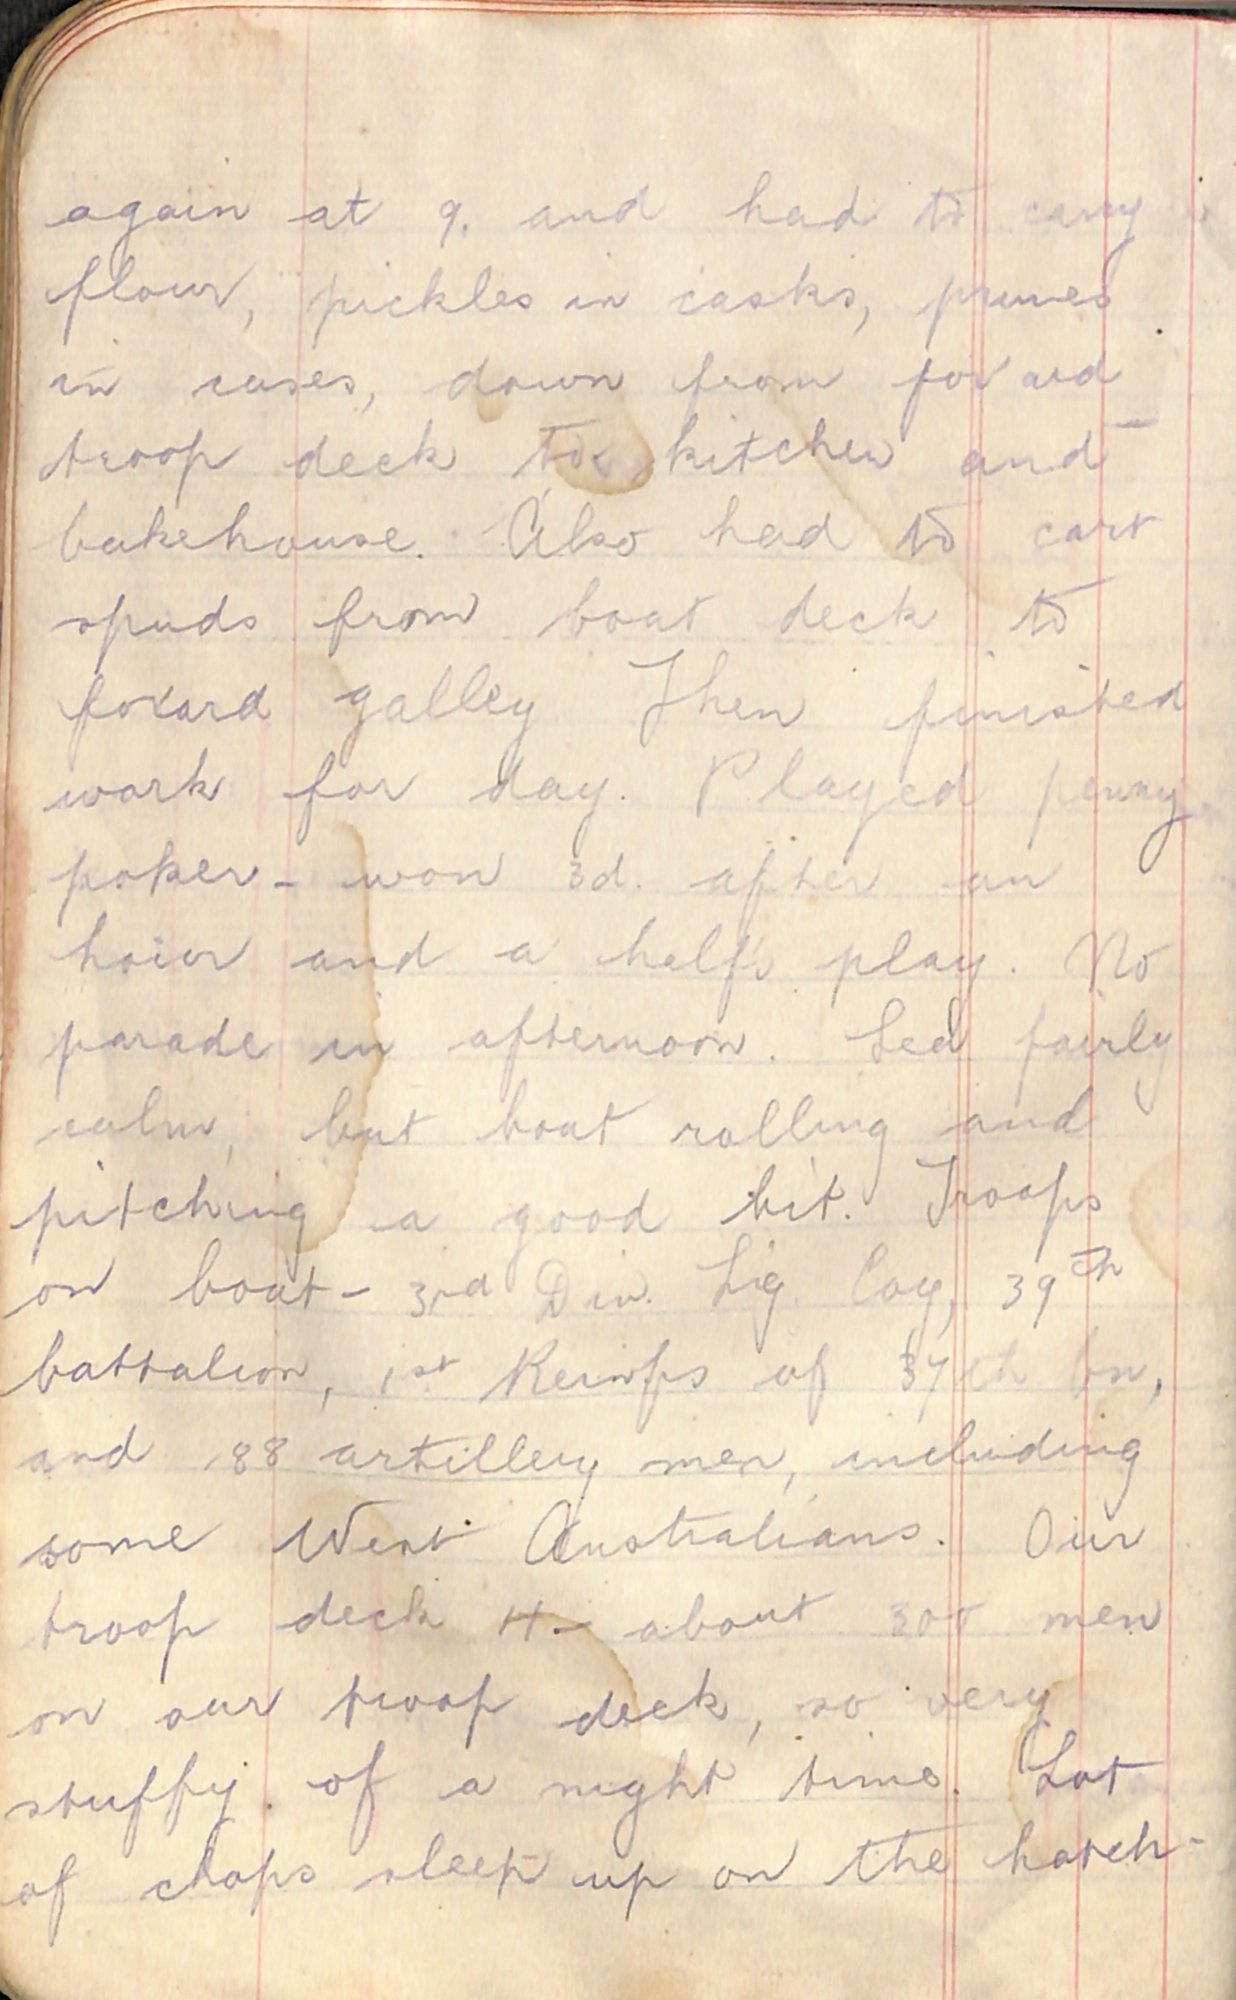 again at 9. and had to carry
flour, pickles in casks, prunes
in cases, down from for'ard
troop deck to kitchen and
bakehouse. Also had to cart
spuds from boat deck to
for'ard galley Then finished
work for day. Played penny
poker - won 3d. after an
hour and a half's play. No
parade in afternoon. Sea fairly
calm, but boat rolling and
pitching a good bit. Troops
on boat - 3rd Div. Sig. Coy, 39th
battalion, 1st Reinfs of 37th bn,
and 188 artillery men, including
some West Australians. Our
troop deck H - about 300 men
on our troop deck, so very
stuffy of a night time. Lot
of chaps sleep up on the hatch-